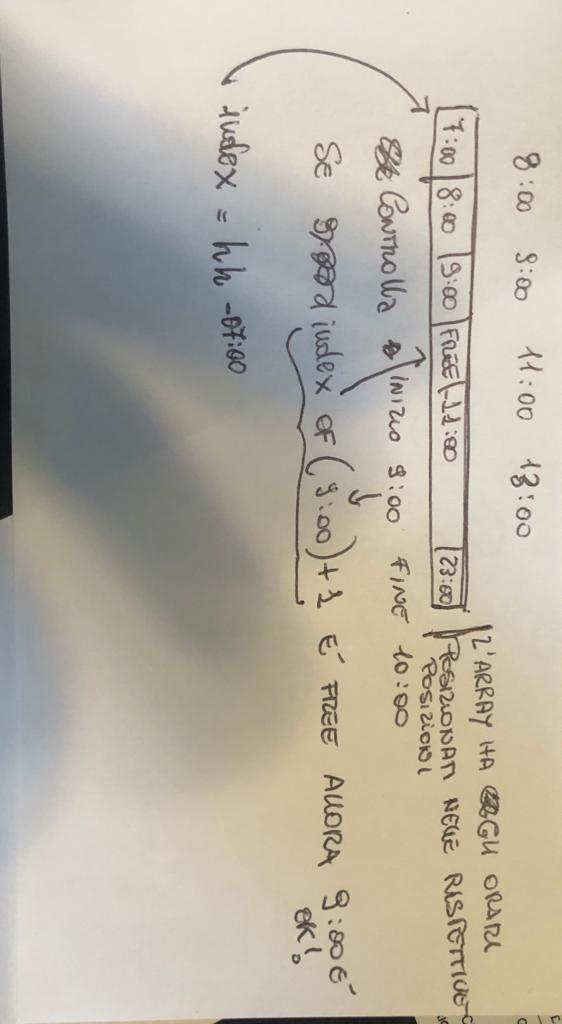 8:00 9:00 11:00 13:00
7:00 8:00 9:00 FREE -11:00 23:00
L'ARRAY HA GLI ORARI
POSIZIONATI NELLE RISPETTIVE
POSIZIONI
CONTROLLA INIZIO 9:00 FINE 10:00
SE index OF (9:00)+1 E' FREE ALLORA 9:00 E'
OK!
index = hh -07:00